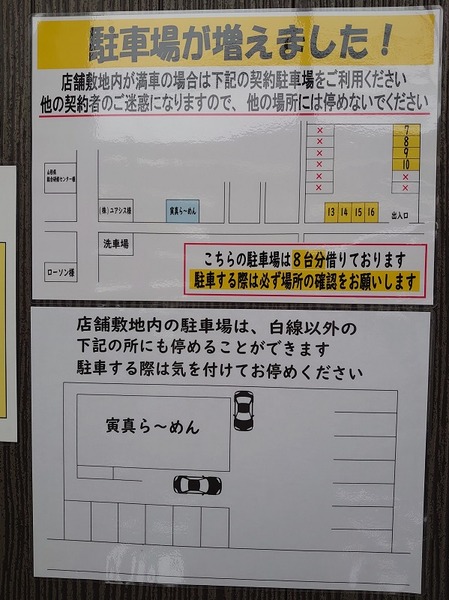 駐車場が増えました！
店舗敷地内が満車の場合は下記の契約駐車場をご利用ください
他の契約者のご迷惑になりますので、他の場所には停めないでください
× 7
× 8
× 9
× 10
× ×
× ×
山形県
総合研修センター様
(株)ユアシス様
寅真ら～めん
13 14 15 16
出入口
洗車場
ローソン様
こちらの駐車場は８台分借りております
駐車する際は必ず場所の確認をお願いします
店舗敷地内の駐車場は、白線以外の
下記の所にも停めることができます
駐車する際は気を付けてお停めください
寅真ら～めん